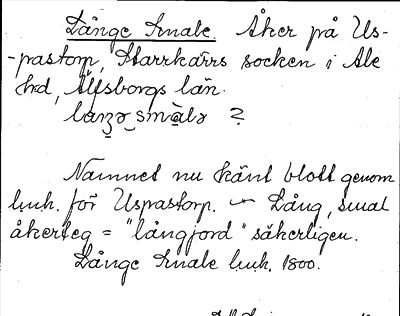 Långe Smale. Åker på Us-
-pastorp, Starrkärrs socken i Ale
hd, Älfsborgs län.
laŋə smàlə ?
Namnet nu känt blott genom
luk. för Uspastorp. — Lång, smal
åkerteg = "långjord" säkerligen.
Långe Smale luk. 1800.